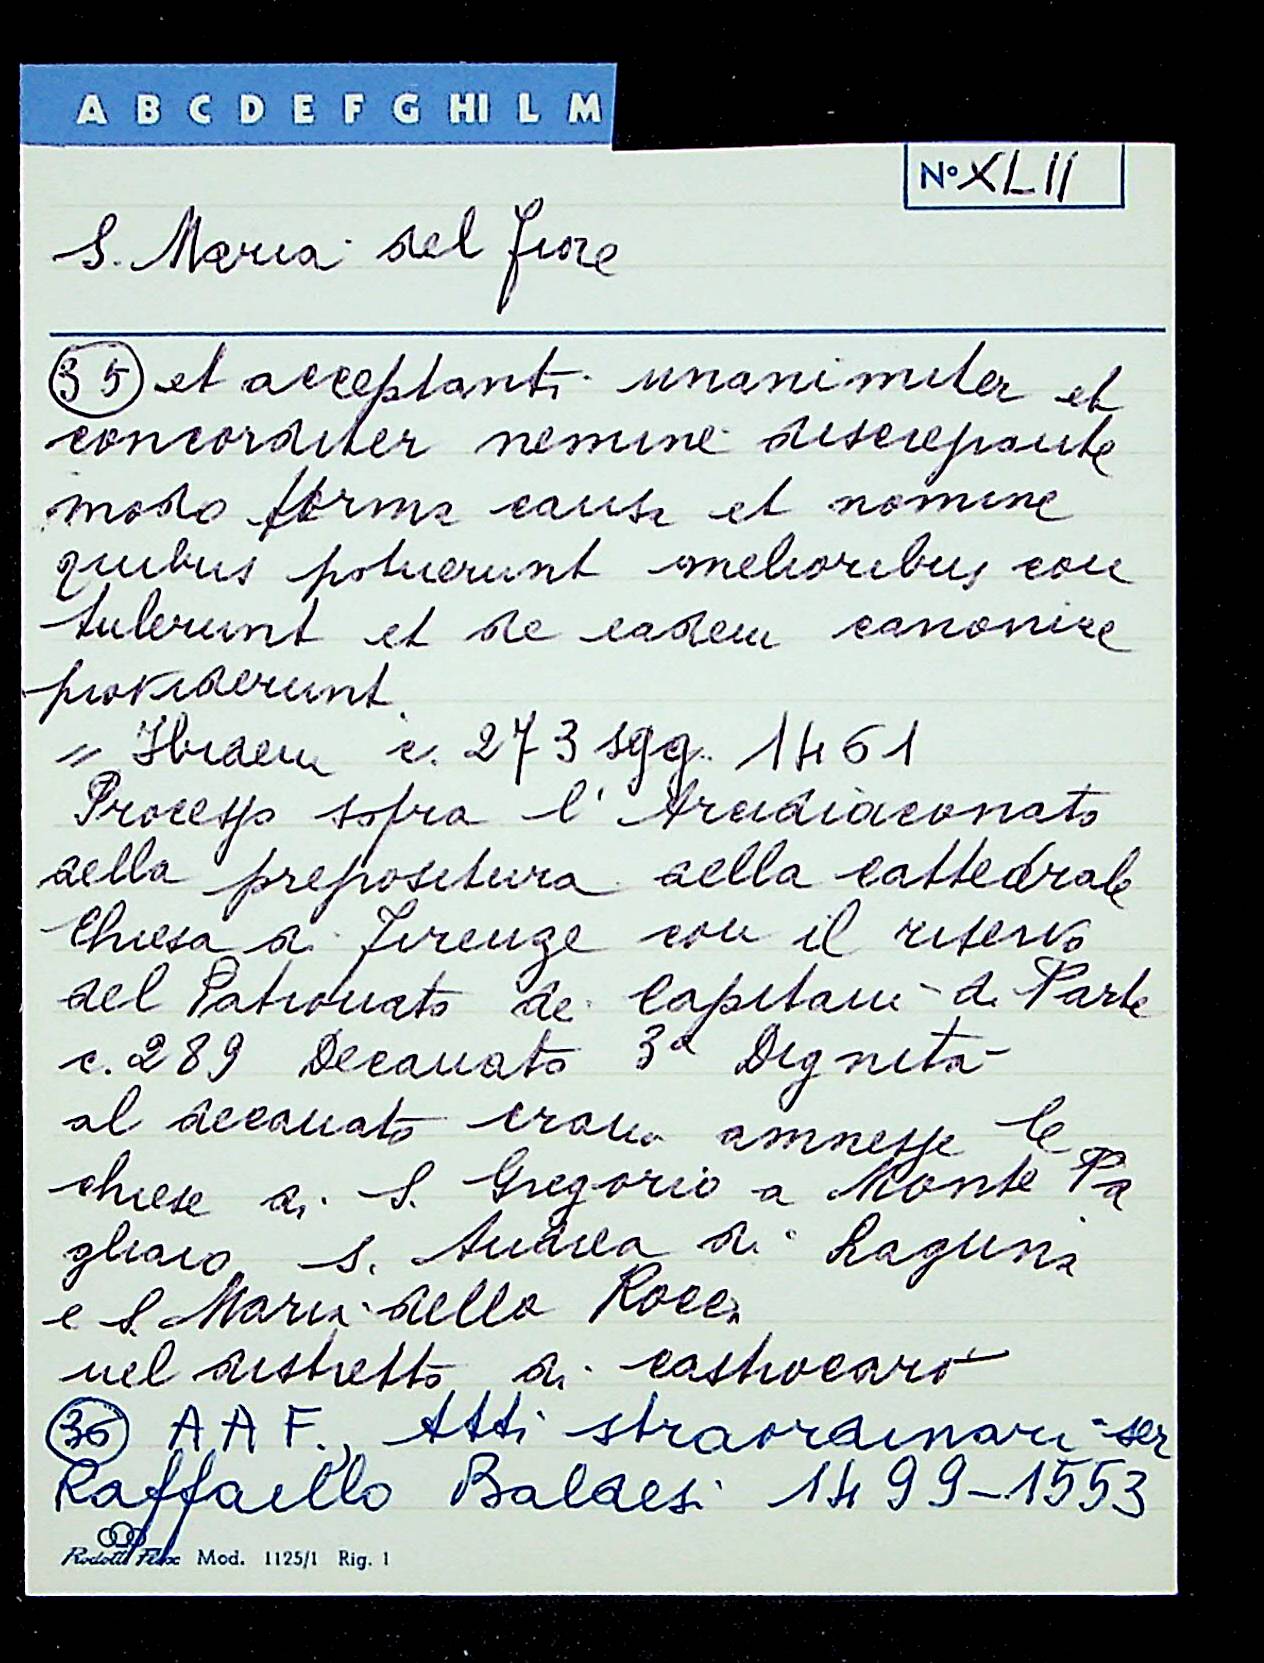 A B C D E F G HI L M
N° XLII
S. Maria del Fiore
35 et acceptanti unanimiter et
concorditer nemine discrepante
modo forma causa et nomine
quibus potuerunt melioribus con
tulerunt et de eadem canonice
providerunt.
" Ibidem c. 273 sgg. 1461
Processo sopra l' Arcidiaconato
della prepositura della cattedrale
Chiesa di Firenze con il riservo
del Patronato dei Capitani di Parte
c. 289 Decanato 3a Dignità
al decanato erano amnesse le
chiese di S. Gregorio a Monte Pa
gliaio S. Andrea di Laguna
e S. Maria della Rocca
nel distretto di castrocaro
36 A A F., Atti straordinari ser
Raffaello Baldesi 1499-1553
Rodotti Flex Mod. 1125/1 Rig. 1